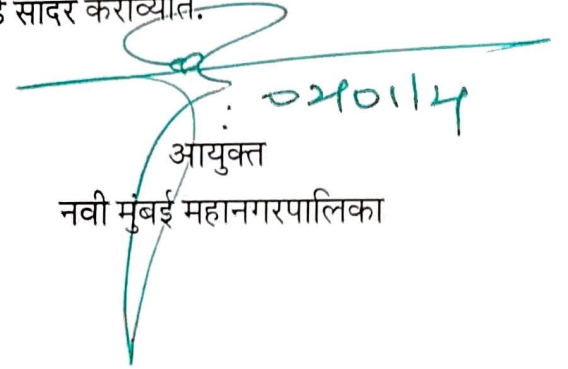 सादर कराव्यात.
आयुक्त
नवी मुंबई महानगरपालिका